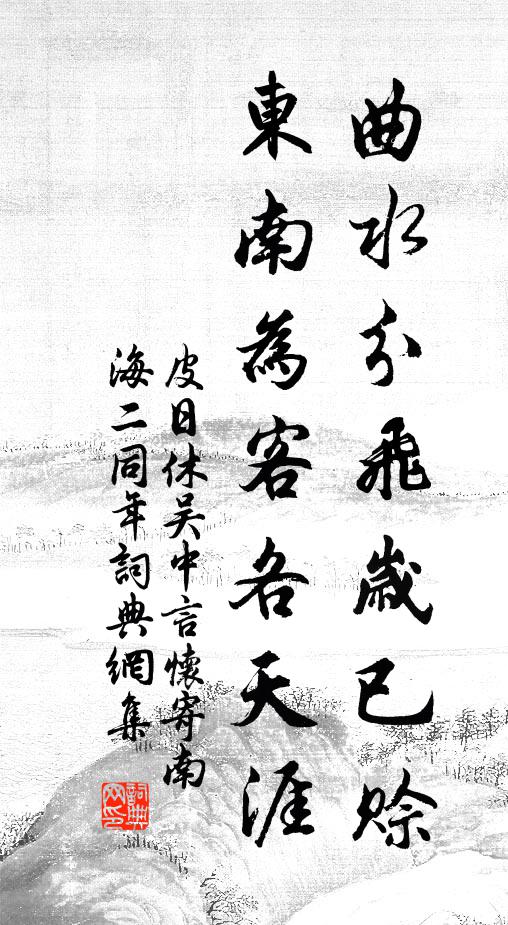 曲水分飛歲已賒
東南為客各天涯
皮日休吴中言懷寄南
海二同年詞典網集
詞典
网印